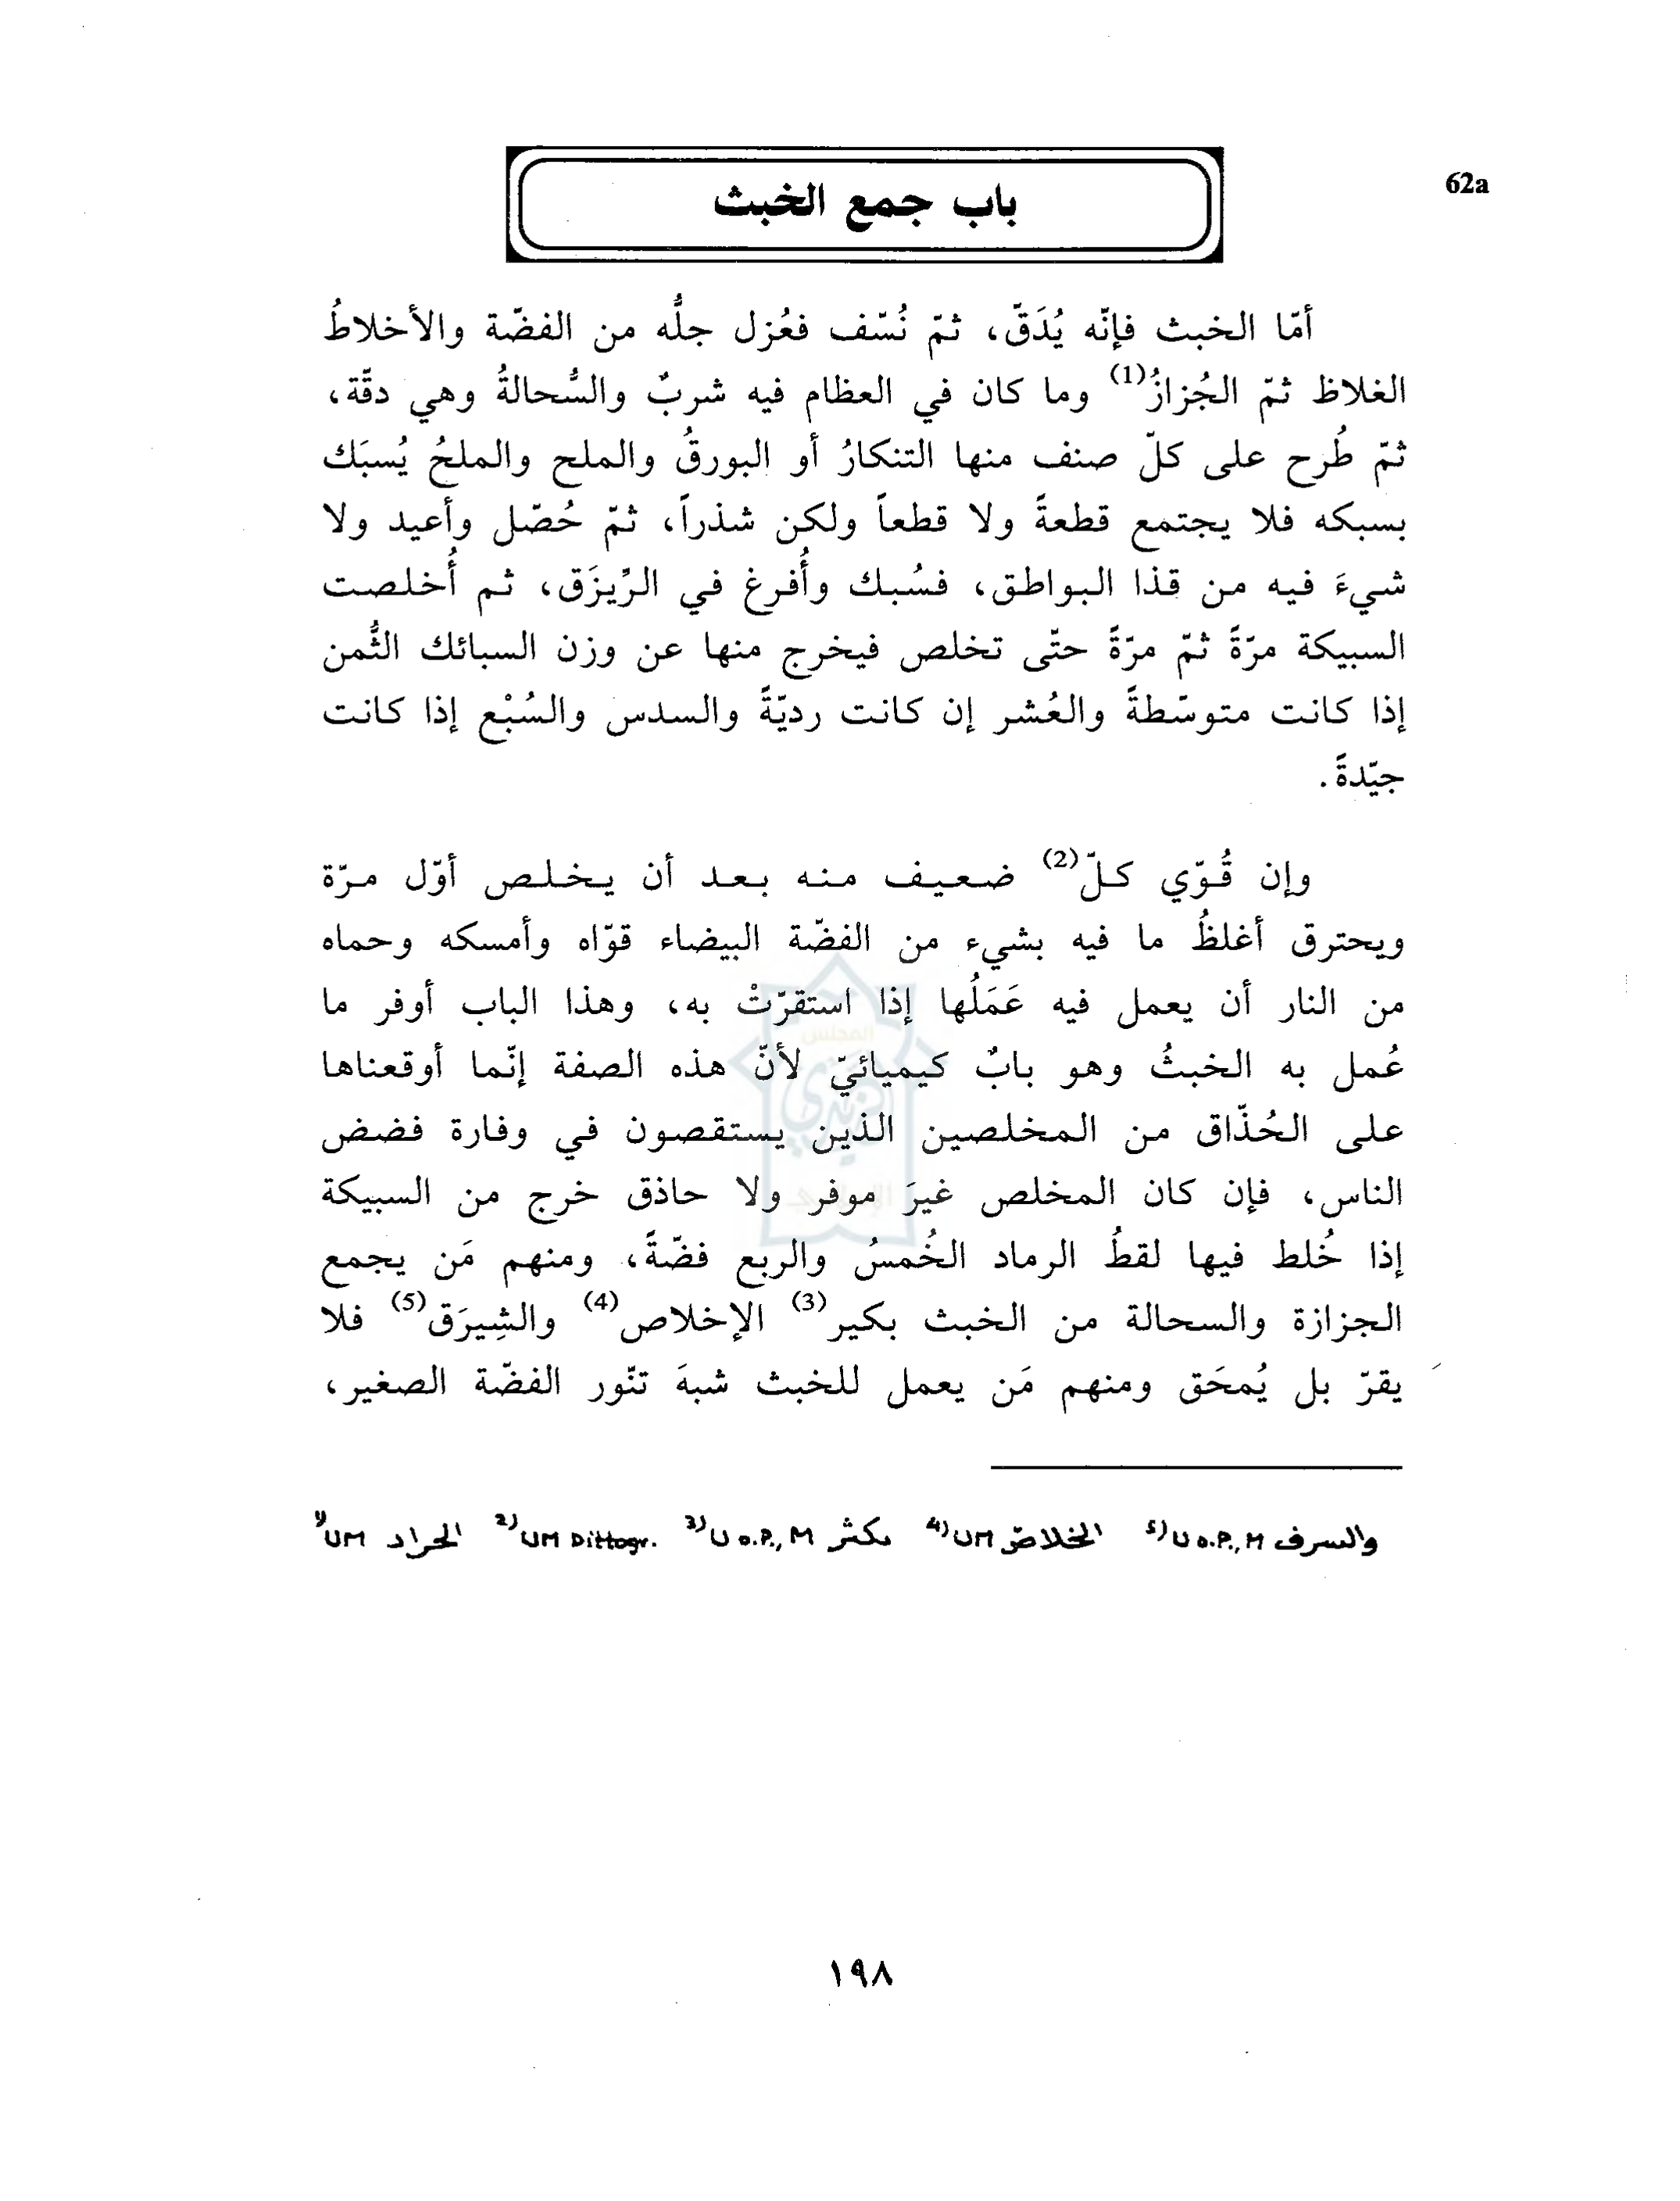 62a
باب جمع الخبث
أمّا الخبث فإنّه يُدَقّ، ثمّ نُسّف فعُزل جلُّه من الفضّة والأخلاطُ
الغلاظ ثمّ الجُزازُ(1) وما كان في العظام فيه شربٌ والسُّحالةُ وهي دقّة،
ثمّ طُرح على كلّ صنف منها التنكارُ أو البورقُ والملح والملحُ يُسبَك
بسبكه فلا يجتمع قطعةً ولا قطعاً ولكن شذراً، ثمّ حُصّل وأعيد ولا
شيءَ فيه من قذا البواطق، فسُبك وأُفرغ في الرِّيزَق، ثم أُخلصت
السبيكة مرّةً ثمّ مرّةً حتّى تخلص فيخرج منها عن وزن السبائك الثُّمن
إذا كانت متوسّطةً والعُشر إن كانت رديّةً والسدس والسُبْع إذا كانت
جيّدةً.
وإن قُوّي كلّ(2) ضعيف منه بعد أن يخلص أوّل مرّة
ويحترق أغلظُ ما فيه بشيء من الفضّة البيضاء قوّاه وأمسكه وحماه
من النار أن يعمل فيه عَمَلُها إذا استقرّتْ به، وهذا الباب أوفر ما
عُمل به الخبثُ وهو بابٌ كيميائيّ لأنّ هذه الصفة إنّما أوقعناها
على الحُذّاق من المخلصين الذين يستقصون في وفارة فضض
الناس، فإن كان المخلص غيرَ موفر ولا حاذق خرج من السبيكة
إذا خُلط فيها لقطُ الرماد الخُمسُ والربع فضّةً، ومنهم مَن يجمع
الجزازة والسحالة من الخبث بكير(3) الإخلاص(4) والشِيرَق(5) فلا
يقرّ بل يُمحَق ومنهم مَن يعمل للخبث شبهَ تنّور الفضّة الصغير،
1) UM الحراد 2) UM Dittogr. 3) U o.P., M مكثر 4) UM الخلاص 5) U o.P., M والسرف
١٩٨